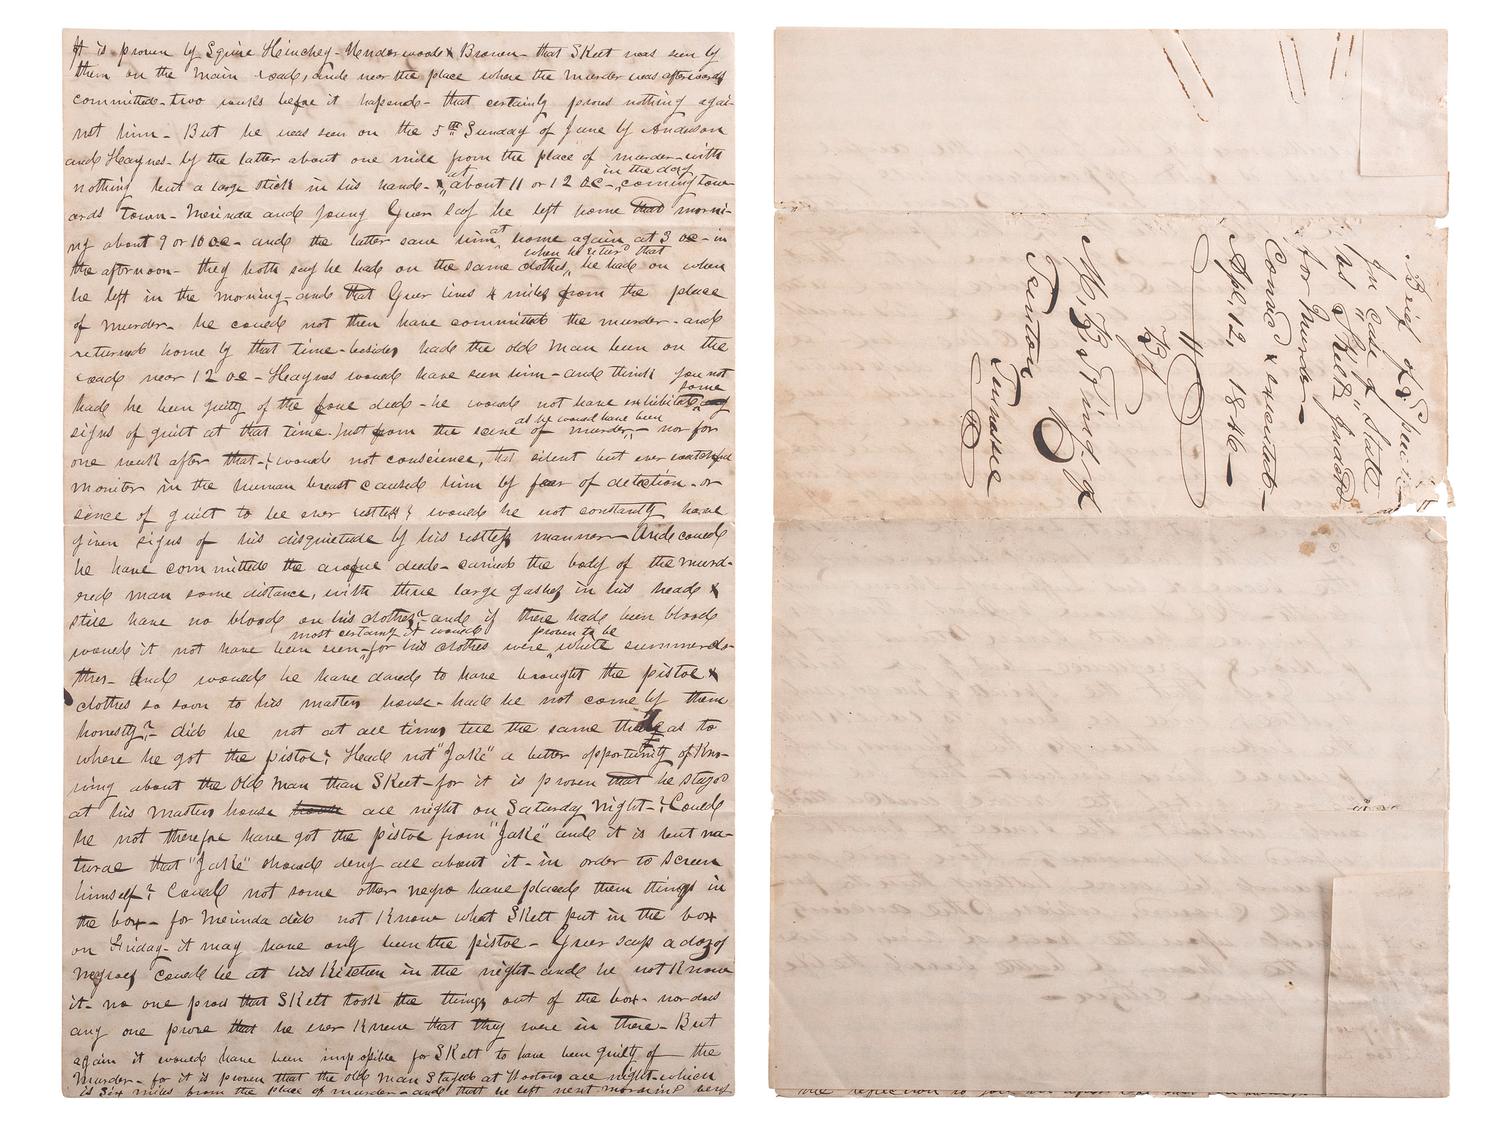 It is proven by Squire Hinchey - Henderwood & Brown - that Skelt was seen by
them on the main road, and near the place where the murder was afterwards
committed - two weeks before it hapened - that certainly proves nothing agai-
nst him - But he was seen on the 5th Sunday of June by Anderson
and Haynes - by the latter about one mile from the place of murder - with
nothing but a large stick in his hand - at about 11 or 12 oc - in the day coming tow-
ards town - Merinda and young Greer say he left home that morni-
ng about 9 or 10 oc - and the latter saw him at home again at 3 oc - in
the afternoon - they both say he had on the same clothes, when he retired that he had on when
he left in the morning - and that Greer lives 4 miles from the place
of murder - he could not then have committed the murder - and
returned home by that time - besides, had the old man been on the
road near 12 oc - Haynes would have seen him - and think you not
had he been guilty of the deed - he would not have exhibited some
signs of guilt at that time just from the scene of murder, as he would have been - nor for
one week after that - & would not conscience, that silent but ever watchful
monitor in the human breast caused him by fear of detection - or
sence of guilt to be ever restless & would he not constantly have
given signs of his disquietude by his restless manner - And could
he have committed the deed - carried the body of the murd-
red man some distance, with three large gashes in his head &
still have no blood on his clothes? - and if there had been blood
would it not have been seen - most certainly it would for his clothes were proven to be white summer clo-
thes - And would he have dared to have brought the pistol &
clothes so soon to his masters house - had he not come by them
honestly? - did he not at all times tell the same thing as to
where he got the pistol? Head not "Jake" a better opportunity of kno-
wing about the Old Man than Skelt - for it is proven that he stayed
at his masters house all night on Saturday Night - ? Could
he not therefore have got the pistol from "Jake" and it is but na-
tural that "Jake" should deny all about it - in order to screen
himself? Could not some other negro have placed them things in
the box - for Merinda did not know what Skelt put in the box
on Friday - it may have only been the pistol - Greer says a doz of
Negroes could be at his Kitchen in the night - and he not know
it - no one proves that Skelt took the things out of the box - nor does
any one prove that he ever knew that they were in there - But
again it would have been impossible for Skelt to have been guilty of the
Murder - for it is proven that the old man stayed at Hortons all night - which
is six miles from the place of murder - and that he left next morning very
Brief of Speech
In case of State
vs Skelt &
for Murder -
Convicd & executed -
Apl, 12, 1846 -
By
Trenton
Tennessee